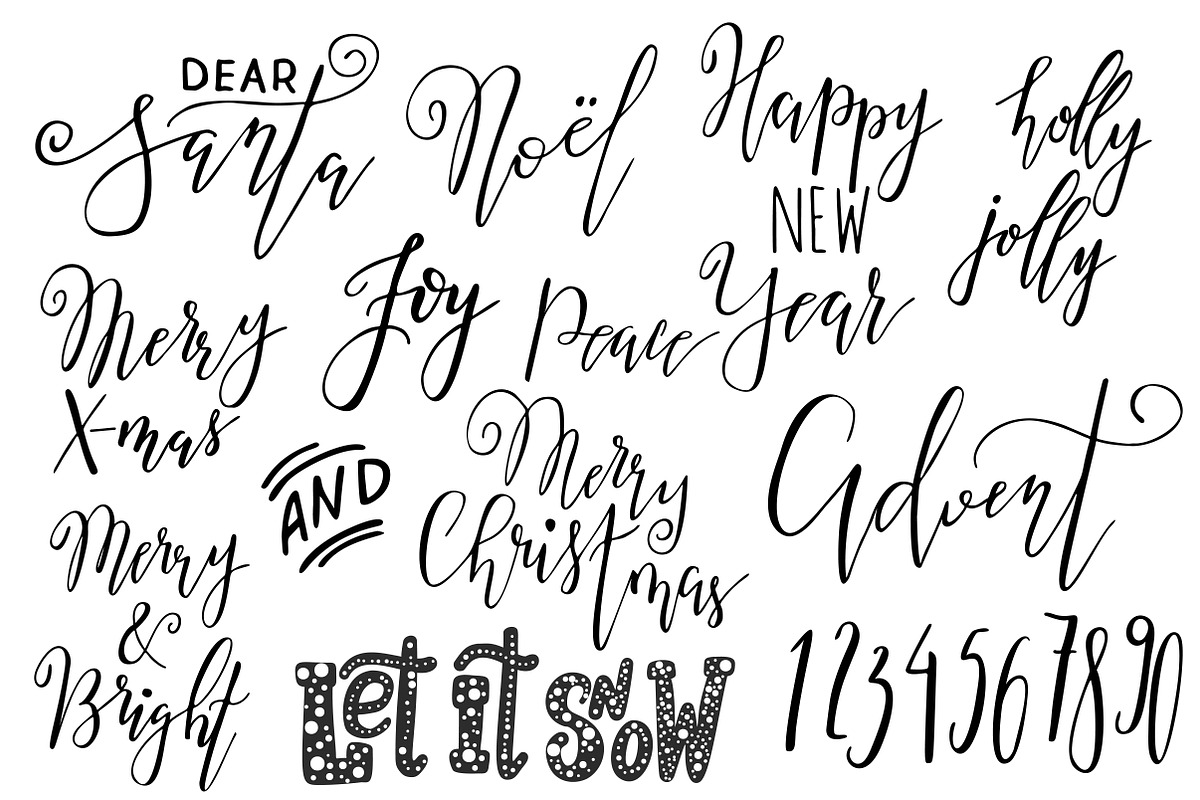 DEAR
Santa
Noël
Happy
NEW
Year
holly
jolly
Merry
X-mas
Joy
Peace
AND
Merry
Christmas
Advent
Merry
&
Bright
Let it SNOW
1234567890